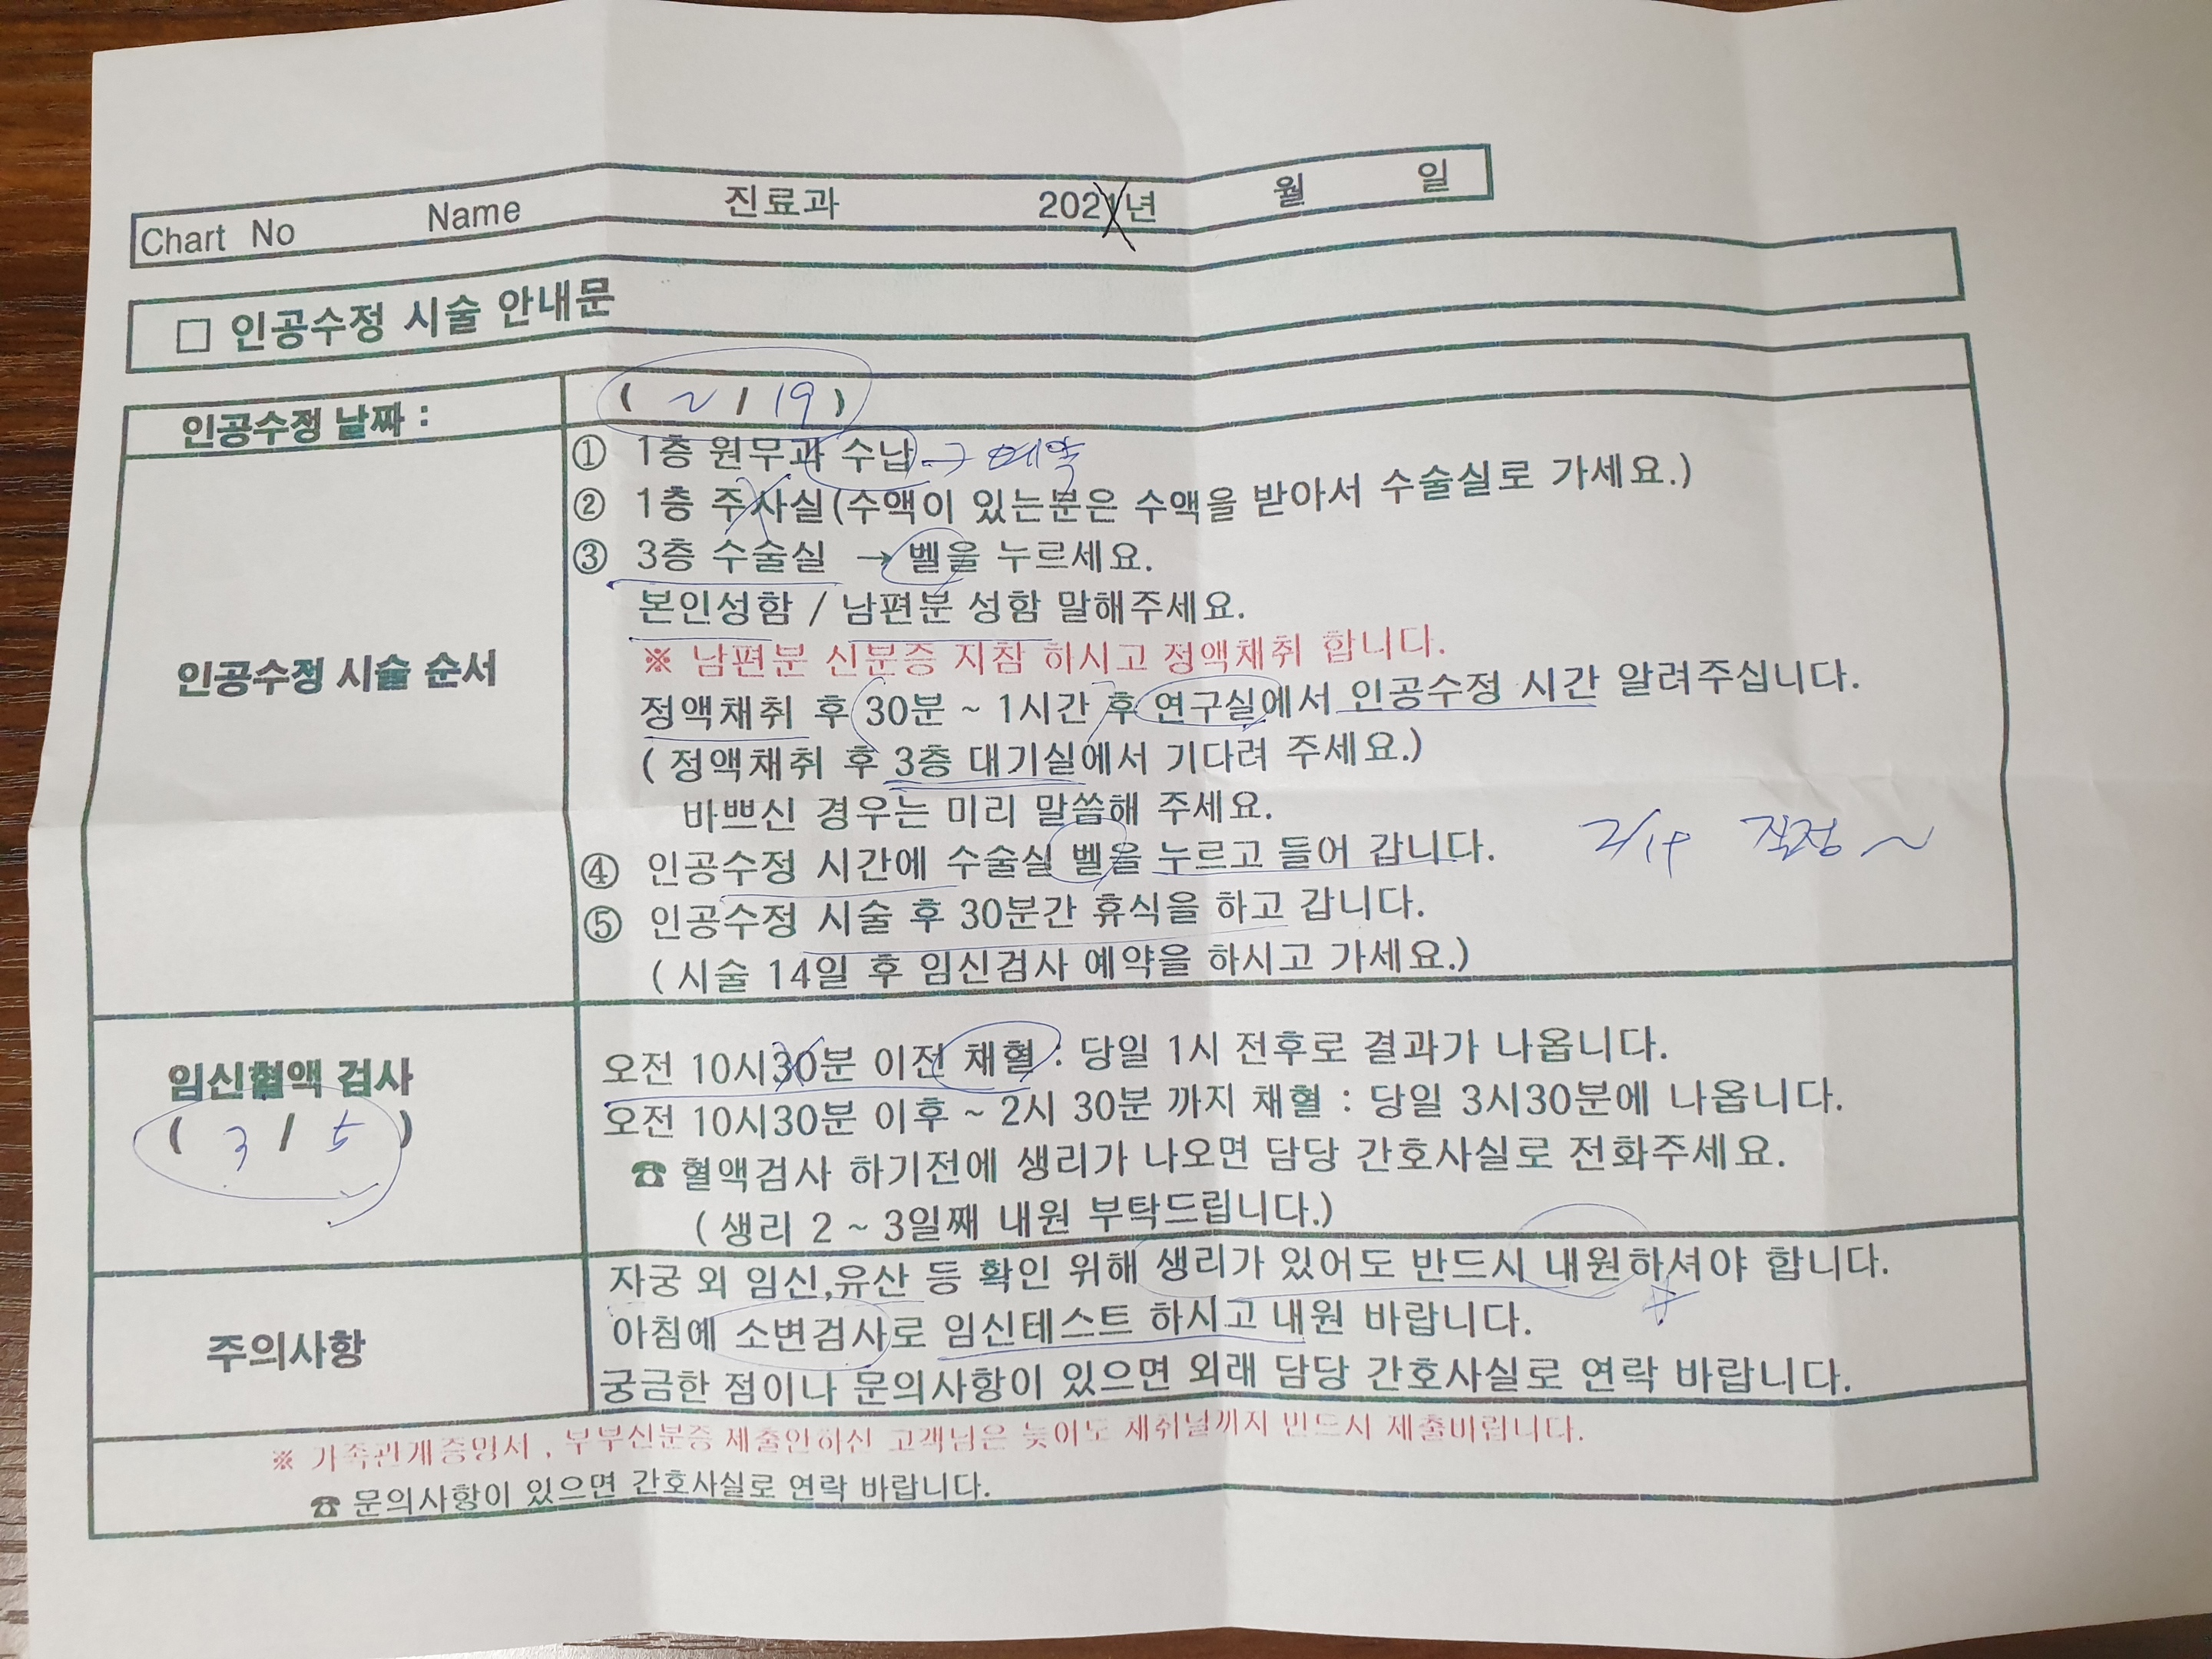 Chart No Name 진료과 202 년 월 일
□ 인공수정 시술 안내문
인공수정 날짜 : ( 2 / 19 )
인공수정 시술 순서
① 1층 원무과 수납 → 예약
② 1층 주사실(수액이 있는분은 수액을 받아서 수술실로 가세요.)
③ 3층 수술실 → 벨을 누르세요.
본인성함 / 남편분 성함 말해주세요.
※ 남편분 신분증 지참 하시고 정액채취 합니다.
정액채취 후 30분 ~ 1시간 후 연구실에서 인공수정 시간 알려주십니다.
( 정액채취 후 3층 대기실에서 기다려 주세요.)
바쁘신 경우는 미리 말씀해 주세요.
④ 인공수정 시간에 수술실 벨을 누르고 들어 갑니다.
⑤ 인공수정 시술 후 30분간 휴식을 하고 갑니다.
( 시술 14일 후 임신검사 예약을 하시고 가세요.)
임신혈액 검사
( 3 / 5 )
오전 10시30분 이전 채혈 : 당일 1시 전후로 결과가 나옵니다.
오전 10시30분 이후 ~ 2시 30분 까지 채혈 : 당일 3시30분에 나옵니다.
☎ 혈액검사 하기전에 생리가 나오면 담당 간호사실로 전화주세요.
( 생리 2 ~ 3일째 내원 부탁드립니다.)
주의사항
자궁 외 임신,유산 등 확인 위해 생리가 있어도 반드시 내원하셔야 합니다.
아침에 소변검사로 임신테스트 하시고 내원 바랍니다.
궁금한 점이나 문의사항이 있으면 외래 담당 간호사실로 연락 바랍니다.
※ 가족관계증명서 , 부부신분증 제출안하신 고객님은 늦어도 채취날까지 반드시 제출바랍니다.
☎ 문의사항이 있으면 간호사실로 연락 바랍니다.